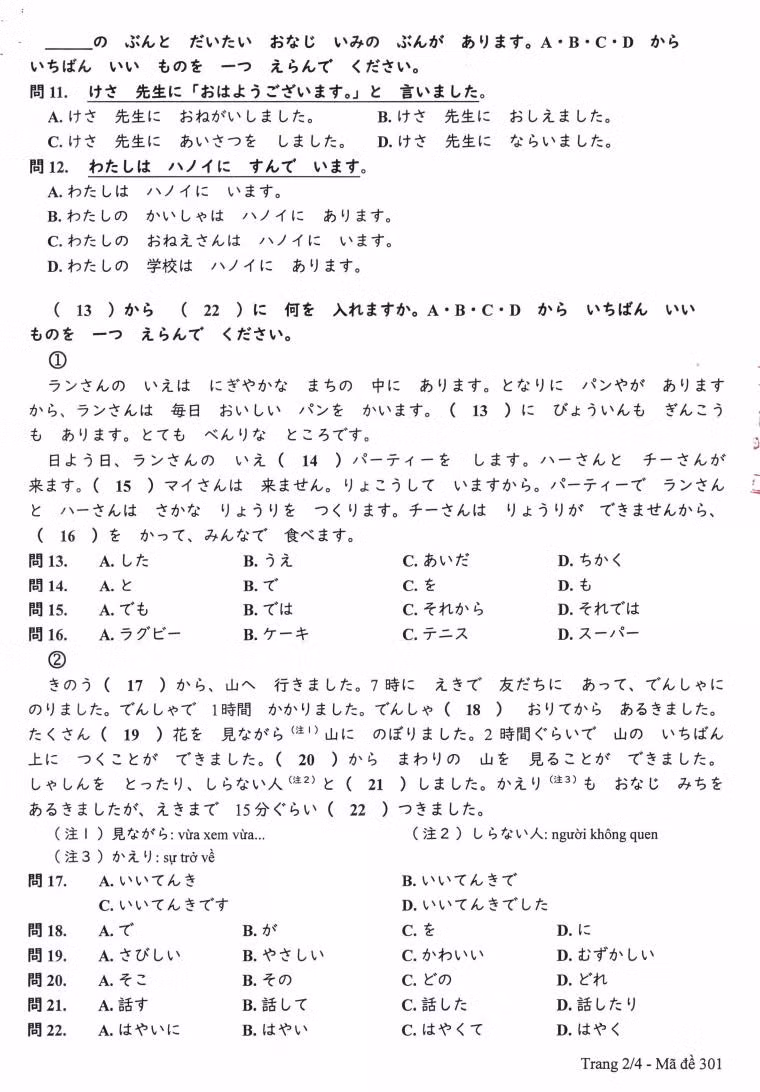 ______の ぶんと だいたい おなじ いみの ぶんが あります。A・B・C・D から
いちばん いい ものを 一つ えらんで ください。
問 11. けさ 先生に「おはようございます。」と 言いました。
A. けさ 先生に おねがいしました。 B. けさ 先生に おしえました。
C. けさ 先生に あいさつを しました。 D. けさ 先生に ならいました。
問 12. わたしは ハノイに すんで います。
A. わたしは ハノイに います。
B. わたしの かいしゃは ハノイに あります。
C. わたしの おねえさんは ハノイに います。
D. わたしの 学校は ハノイに あります。
( 13 )から ( 22 )に 何を 入れますか。A・B・C・D から いちばん いい
ものを 一つ えらんで ください。
①
ランさんの いえは にぎやかな まちの 中に あります。となりに パンやが あります
から、ランさんは 毎日 おいしい パンを かいます。( 13 )に びょういんも ぎんこう
も あります。とても べんりな ところです。
日よう日、ランさんの いえ( 14 )パーティーを します。ハーさんと チーさんが
来ます。( 15 )マイさんは 来ません。りょこうして いますから。パーティーで ランさん
と ハーさんは さかな りょうりを つくります。チーさんは りょうりが できませんから、
( 16 )を かって、みんなで 食べます。
問 13. A. した B. うえ C. あいだ D. ちかく
問 14. A. と B. で C. を D. も
問 15. A. でも B. では C. それから D. それでは
問 16. A. ラグビー B. ケーキ C. テニス D. スーパー
②
きのう( 17 )から、山へ 行きました。7 時に えきで 友だちに あって、でんしゃに
のりました。でんしゃで 1時間 かかりました。でんしゃ( 18 ) おりてから あるきました。
たくさん( 19 )花を 見ながら(注1)山に のぼりました。2 時間ぐらいで 山の いちばん
上に つくことが できました。( 20 )から まわりの 山を 見ることが できました。
しゃしんを とったり、しらない人(注2)と( 21 )しました。かえり(注3)も おなじ みちを
あるきましたが、えきまで 15分ぐらい( 22 )つきました。
(注1)見ながら: vừa xem vừa... (注2)しらない人: người không quen
(注3)かえり: sự trở về
問 17. A. いいてんき B. いいてんきで
C. いいてんきです D. いいてんきでした
問 18. A. で B. が C. を D. に
問 19. A. さびしい B. やさしい C. かわいい D. むずかしい
問 20. A. そこ B. その C. どの D. どれ
問 21. A. 話す B. 話して C. 話した D. 話したり
問 22. A. はやいに B. はやい C. はやくて D. はやく
Trang 2/4 - Mã đề 301